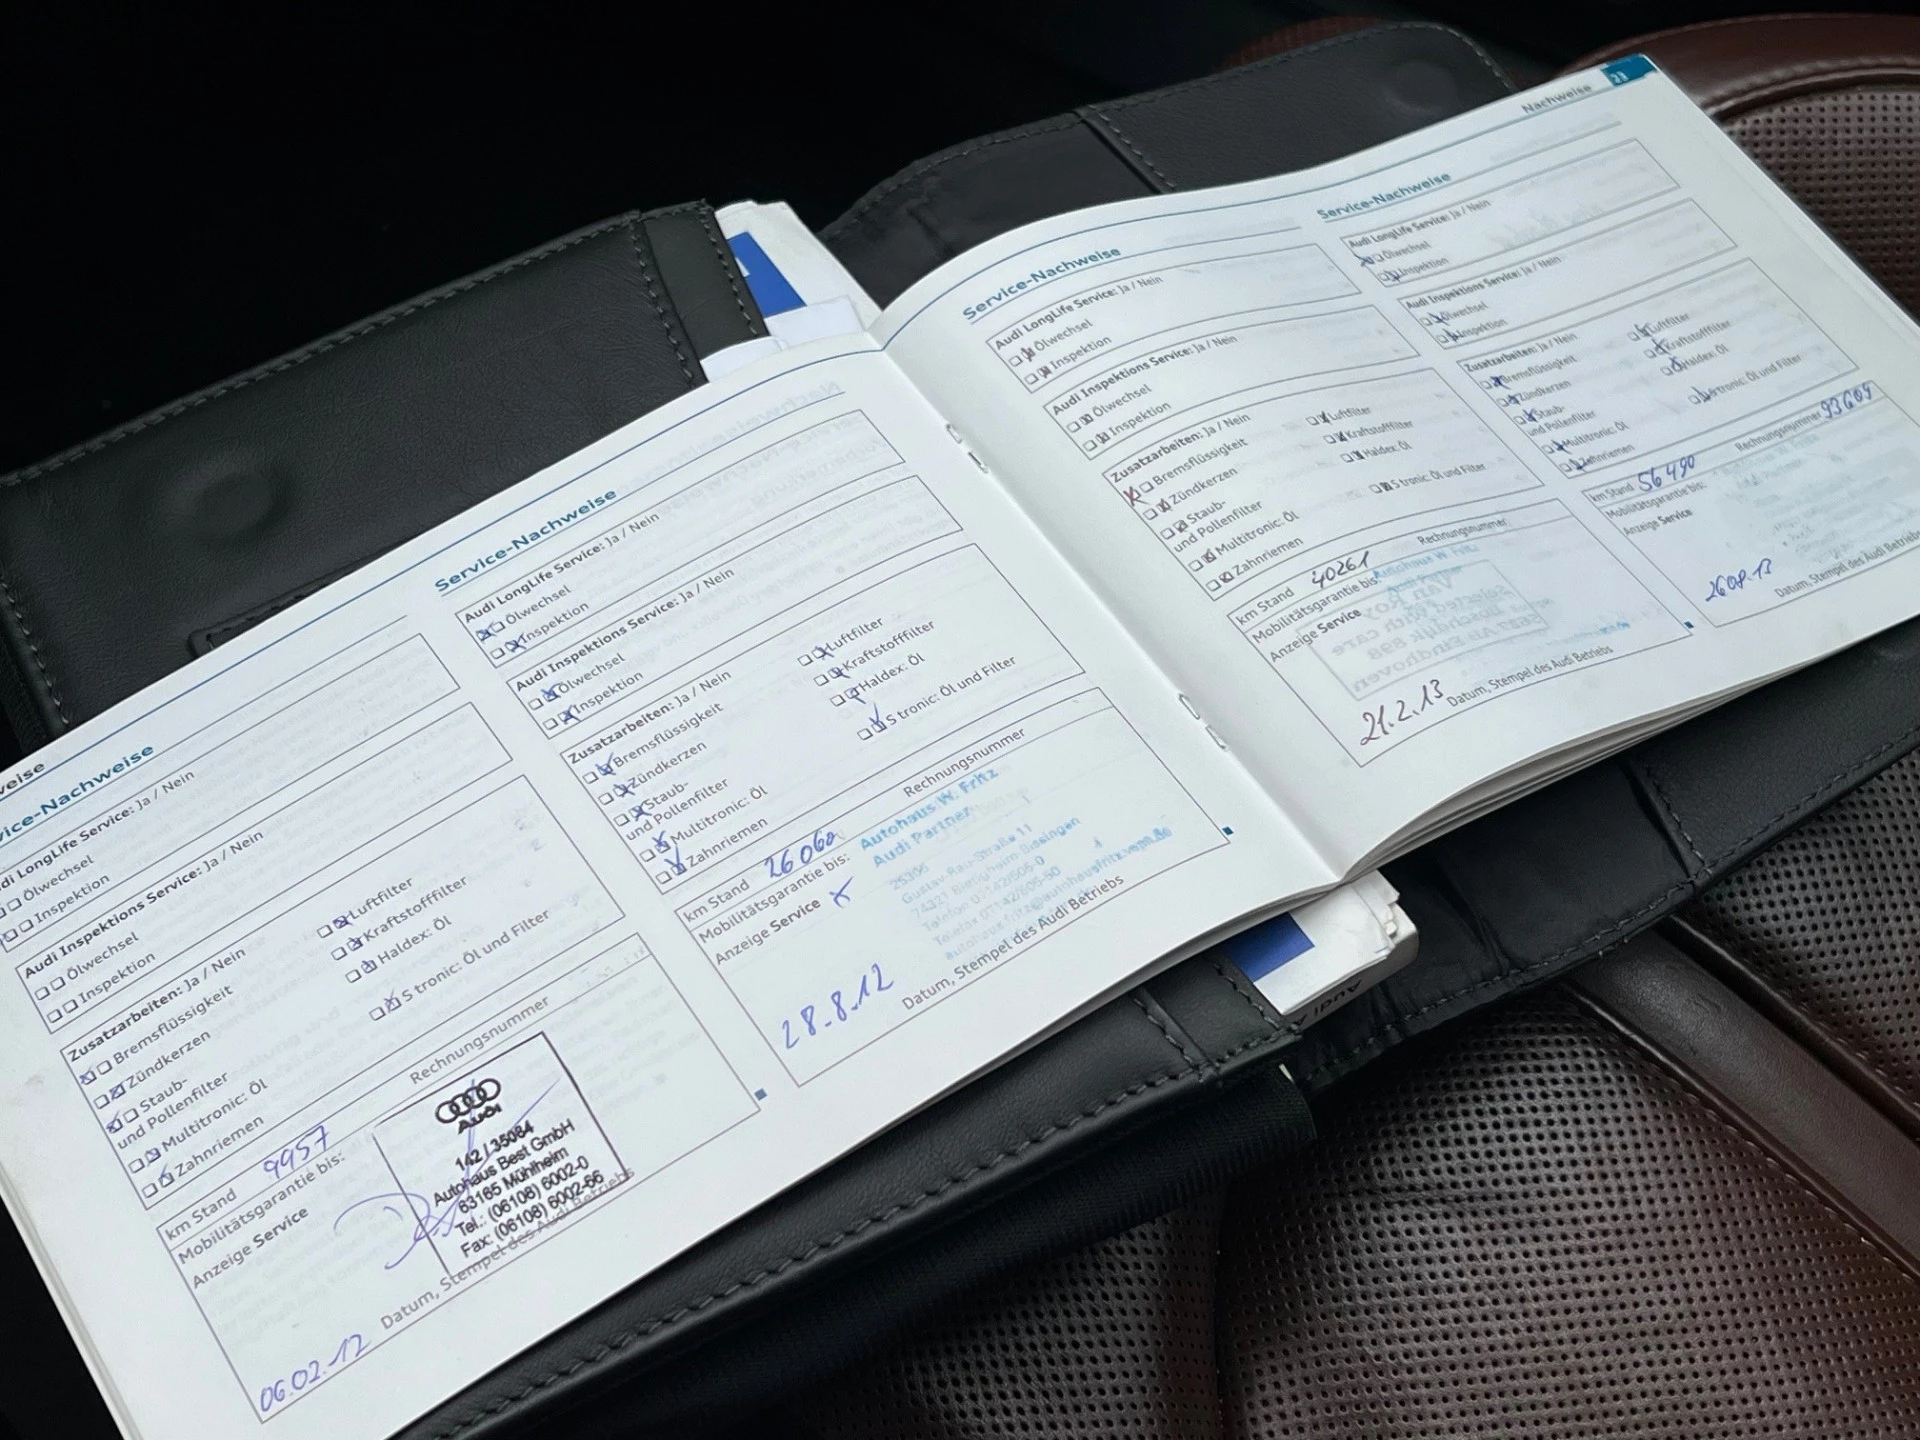 eise
ice-Nachweise
di LongLife Service: Ja / Nein
Ölwechsel
Inspektion
Audi Inspektions Service: Ja / Nein
Ölwechsel
Inspektion
Zusatzarbeiten: Ja / Nein
Bremsflüssigkeit
Zündkerzen
Staub-
und Pollenfilter
Multitronic: Öl
Zahnriemen
Luftfilter
Kraftstofffilter
Haldex: Öl
S tronic: Öl und Filter
km Stand 9957
Rechnungsnummer
Mobilitätsgarantie bis:
Anzeige Service
Audi
142 / 35084
Autohaus Best GmbH
63165 Mühlheim
Tel.: (06108) 6002-0
Fax: (06108) 6002-66
06.02.12
Datum, Stempel des Audi Betriebs
Service-Nachweise
Audi LongLife Service: Ja / Nein
Ölwechsel
Inspektion
Audi Inspektions Service: Ja / Nein
Ölwechsel
Inspektion
Zusatzarbeiten: Ja / Nein
Bremsflüssigkeit
Zündkerzen
Staub-
und Pollenfilter
Multitronic: Öl
Zahnriemen
Luftfilter
Kraftstofffilter
Haldex: Öl
S tronic: Öl und Filter
km Stand 26060
Rechnungsnummer
Mobilitätsgarantie bis:
Anzeige Service
Autohaus W. Fritz
Audi Partner
25395
Gustav-Rau-Straße 11
74321 Bietigheim-Bissingen
Telefon 07142/505-0
Telefax 07142/505-50
28.8.12
Datum, Stempel des Audi Betriebs
Service-Nachweise
Audi LongLife Service: Ja / Nein
Ölwechsel
Inspektion
Audi Inspektions Service: Ja / Nein
Ölwechsel
Inspektion
Zusatzarbeiten: Ja / Nein
Bremsflüssigkeit
Zündkerzen
Staub-
und Pollenfilter
Multitronic: Öl
Zahnriemen
Luftfilter
Kraftstofffilter
Haldex: Öl
S tronic: Öl und Filter
km Stand 40261
Rechnungsnummer
Mobilitätsgarantie bis:
Anzeige Service
Autohaus W. Fritz
21.2.13
Datum, Stempel des Audi Betriebs
Nachweise 23
Service-Nachweise
Audi LongLife Service: Ja / Nein
Ölwechsel
Inspektion
Audi Inspektions Service: Ja / Nein
Ölwechsel
Inspektion
Zusatzarbeiten: Ja / Nein
Bremsflüssigkeit
Zündkerzen
Staub-
und Pollenfilter
Multitronic: Öl
Zahnriemen
Luftfilter
Kraftstofffilter
Haldex: Öl
S tronic: Öl und Filter
km Stand 56490
Rechnungsnummer 93609
Mobilitätsgarantie bis:
Anzeige Service
26.08.13
Datum, Stempel des Audi Betriebs
Audi